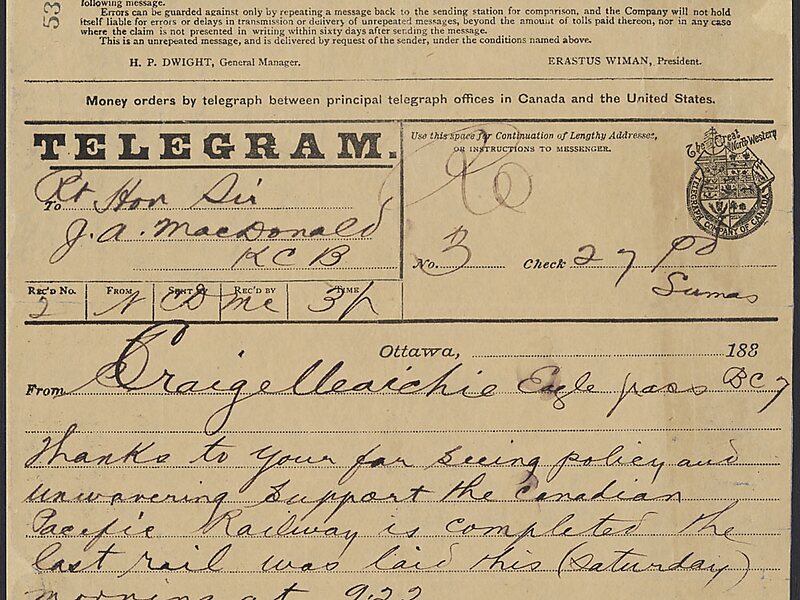 following message.
Errors can be guarded against only by repeating a message back to the sending station for comparison, and the Company will not hold
itself liable for errors or delays in transmission or delivery of unrepeated messages, beyond the amount of tolls paid thereon, nor in any case
where the claim is not presented in writing within sixty days after sending the message.
This is an unrepeated message, and is delivered by request of the sender, under the conditions named above.
H. P. DWIGHT, General Manager. ERASTUS WIMAN, President.
53
Money orders by telegraph between principal telegraph offices in Canada and the United States.
TELEGRAM.
To Rt Hon Sir
J. A. MacDonald
K C B
Use this space for Continuation of Lengthy Addresses,
OR INSTRUCTIONS TO MESSENGER.
The Great North Western
TELEGRAPH COMPANY OF CANADA
No. 3 Check 27 Pd
Sumas
REC'D No. FROM SENT BY REC'D BY TIME
2 N CD Mc 3 P
Ottawa, 188
From Craigellaichie Eagle pass BC 7
Thanks to your far seeing policy and
unwavering support the Canadian
Pacific Railway is completed the
last rail was laid this (Saturday)
morning at 9.22